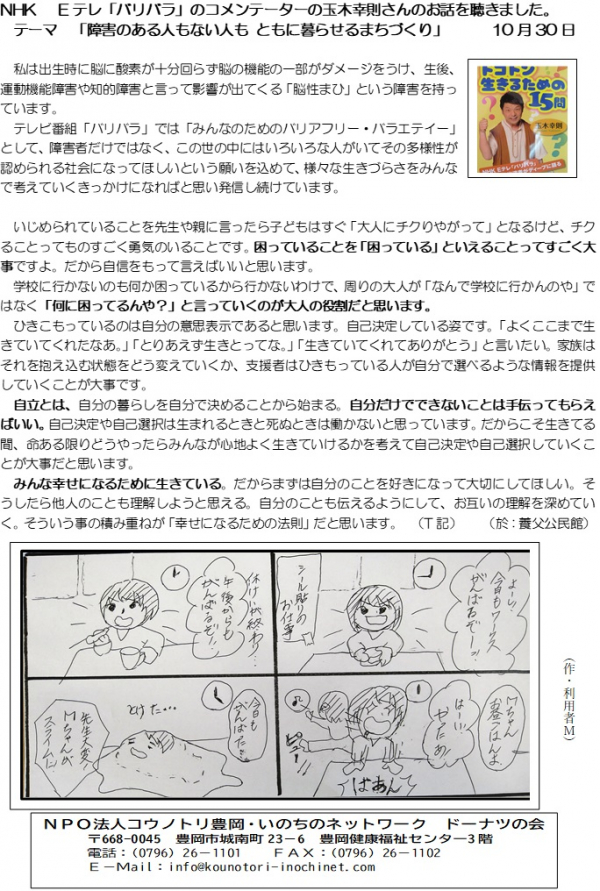 NHK　Eテレ「バリバラ」のコメンテーターの玉木幸則さんのお話を聴きました。
テーマ　「障害のある人もない人も ともに暮らせるまちづくり」　　10月30日
私は出生時に脳に酸素が十分回らず脳の機能の一部がダメージをうけ、生後、
運動機能障害や知的障害と言って影響が出てくる「脳性まひ」という障害を持っ
ています。
テレビ番組「バリバラ」では「みんなのためのバリアフリー・バラエティー」
として、障害者だけではなく、この世の中にはいろいろな人がいてその多様性が
認められる社会になってほしいという願いを込めて、様々な生きづらさをみんな
で考えていくきっかけになればと思い発信し続けています。
トコトン
生きるための
15問
玉木幸則
いじめられていることを先生や親に言ったら子どもはすぐ「大人にチクりやがって」となるけど、チク
ることってものすごく勇気のいることです。困っていることを「困っている」といえることってすごく大
事ですよ。だから自信をもって言えばいいと思います。
学校に行かないのも何か困っているから行かないわけで、周りの大人が「なんで学校に行かんのや」で
はなく「何に困ってるんや？」と言っていくのが大人の役割だと思います。
ひきこもっているのは自分の意思表示であると思います。自己決定している姿です。「よくここまで生
きていてくれたなあ。」「とりあえず生きとってな。」「生きていてくれてありがとう」と言いたい。家族は
それを抱え込む状態をどう変えていくか、支援者はひきもっている人が自分で選べるような情報を提供
していくことが大事です。
自立とは、自分の暮らしを自分で決めることから始まる。自分だけでできないことは手伝ってもらえ
ばいい。自己決定や自己選択は生まれるときと死ぬときは働かないと思っています。だからこそ生きてる
間、命ある限りどうやったらみんなが心地よく生きていけるかを考えて自己決定や自己選択していくこ
とが大事だと思います。
みんな幸せになるために生きている。だからまずは自分のことを好きになって大切にしてほしい。そ
うしたら他人のことも理解しようと思える。自分のことも伝えるようにして、お互いの理解を深めてい
く。そういう事の積み重ねが「幸せになるための法則」だと思います。　（T 記）　　（於：養父公民館）
よーし
今日もワークス
がんばるぞーッ!
シール貼りの
お仕事
Mちゃん
お昼ごはんよ
はーい
やったぁ
ばあんっ
ピュー!!
休けい終わり…
午後からも
がんばるぞ!
今日も
がんばった…
とけた…
先生大変!
Mちゃんが
スライムに
（作・利用者M）
NPO法人コウノトリ豊岡・いのちのネットワーク　ドーナツの会
〒668-0045　豊岡市城南町23－6　豊岡健康福祉センター3階
電話：(0796) 26－1101　　FAX：(0796) 26－1102
E－Mail：info@kounotori-inochinet.com